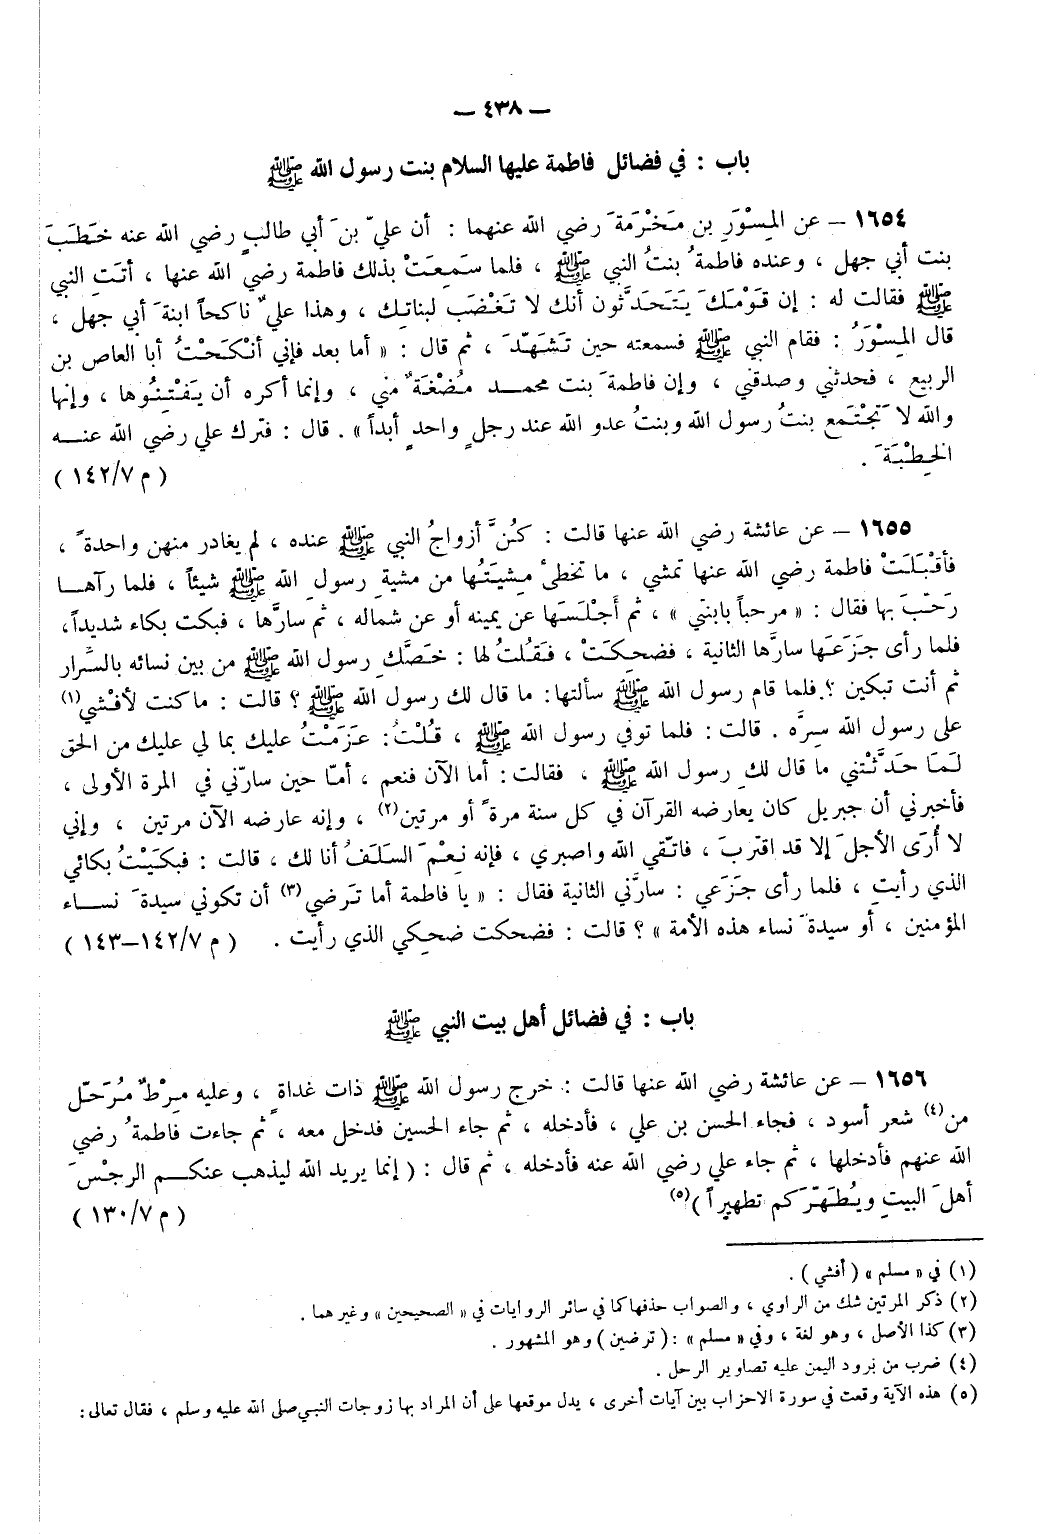 — ٤٣٨ —
باب : في فضائل فاطمة عليها السلام بنت رسول الله ﷺ
١٦٥٤ – عن المِسْوَرِ بن مَخْرَمَةَ رضي الله عنهما : أن عليّ بنَ أبي طالبٍ رضي الله عنه خَطَبَ
بنت أبي جهل ، وعنده فاطمةُ بنتُ النبي ﷺ ، فلما سَمِعَتْ بذلك فاطمة رضي الله عنها ، أتَتِ النبي
ﷺ فقالت له : إن قَوْمَكَ يَتَحَدَّثون أنك لا تَغْضَب لبناتِك ، وهذا عليٌّ ناكحاً ابنةَ أبي جهل ،
قال المِسْوَرُ : فقام النبي ﷺ فسمعته حين تَشَهّدَ ، ثم قال : « أما بعد فإني أنْكَحْتُ أبا العاص بن
الربيع ، فحدثني وصدقني ، وإن فاطمةَ بنت محمد مُضْغَةٌ مني ، وإنما أكره أن يَفْتِنُوها ، وإنها
والله لا تَجْتَمع بنتُ رسول الله وبنتُ عدو الله عند رجلٍ واحدٍ أبداً » . قال : فترك علي رضي الله عنه
الخِطْبَةَ . ( م ١٤٢/٧ )
١٦٥٥ – عن عائشة رضي الله عنها قالت : كُنَّ أزواجُ النبي ﷺ عنده ، لم يغادر منهن واحدةً ،
فأقْبَلَتْ فاطمة رضي الله عنها تمشي ، ما تخطىْ مِشيَتُها من مشيةِ رسولِ الله ﷺ شيئاً ، فلما رآها
رَحّبَ بها فقال : « مرحباً بابنتي » ، ثم أَجْلَسَها عن يمينه أو عن شماله ، ثم سارَّها ، فبكت بكاء شديداً،
فلما رأى جَزَعَها سارَّها الثانية ، فضحكَتْ ، فَقُلتُ لها : خَصَّكِ رسول الله ﷺ من بين نسائه بالسِّرار
ثم أنت تبكين ؟ فلما قام رسول الله ﷺ سألتها: ما قال لك رسول الله ﷺ ؟ قالت : ما كنت لأفْشي(١)
على رسول الله سِرَّه . قالت : فلما توفي رسول الله ﷺ ، قُلْتُ: عَزَمْتُ عليك بما لي عليك من الحق
لَمَا حَدَّثْتِني ما قال لكِ رسول الله ﷺ ، فقالت: أما الآن فنعم ، أمّا حين سارّني في المرة الأولى ،
فأخبرني أن جبريل كان يعارضه القرآن في كل سنة مرةً أو مرتين(٢) ، وإنه عارضه الآن مرتين ، وإني
لا أُرَى الأجلَ إلا قد اقترَبَ ، فاتّقي الله واصبري ، فإنه نِعْمَ السلَفُ أنا لك ، قالت : فبكَيْتُ بكائي
الذي رأيتِ ، فلما رأى جَزَعي : سارَّني الثانية فقال : « يا فاطمة أما تَرضي(٣) أن تكوني سيدةَ نساء
المؤمنين ، أو سيدةَ نساء هذه الأمة » ؟ قالت : فضحكت ضحِكي الذي رأيت . ( م ١٤٢/٧–١٤٣ )
باب : في فضائل أهل بيت النبي ﷺ
١٦٥٦ – عن عائشة رضي الله عنها قالت : خرج رسول الله ﷺ ذات غداةٍ ، وعليه مِرْطٌ مُرَحّل
من(٤) شعر أسود ، فجاء الحسن بن علي ، فأدخله ، ثم جاء الحسين فدخل معه ، ثم جاءت فاطمةُ رضي
الله عنهم فأدخلها ، ثم جاء علي رضي الله عنه فأدخله ، ثم قال : ( إنما يريد الله ليذهب عنكم الرجْسَ
أهلَ البيتِ ويُطَهّرَكم تطهيراً )(٥) ( م ١٣٠/٧ )
(١) في « مسلم » ( أفشي ) .
(٢) ذكر المرتين شك من الراوي ، والصواب حذفها كما في سائر الروايات في « الصحيحين » وغيرهما .
(٣) كذا الأصل ، وهو لغة ، وفي « مسلم » : ( ترضين ) وهو المشهور .
(٤) ضرب من برود اليمن عليه تصاوير الرحل .
(٥) هذه الآية وقعت في سورة الاحزاب بين آيات أخرى ، يدل موقعها على أن المراد بها زوجات النبي صلى الله عليه وسلم ، فقال تعالى :